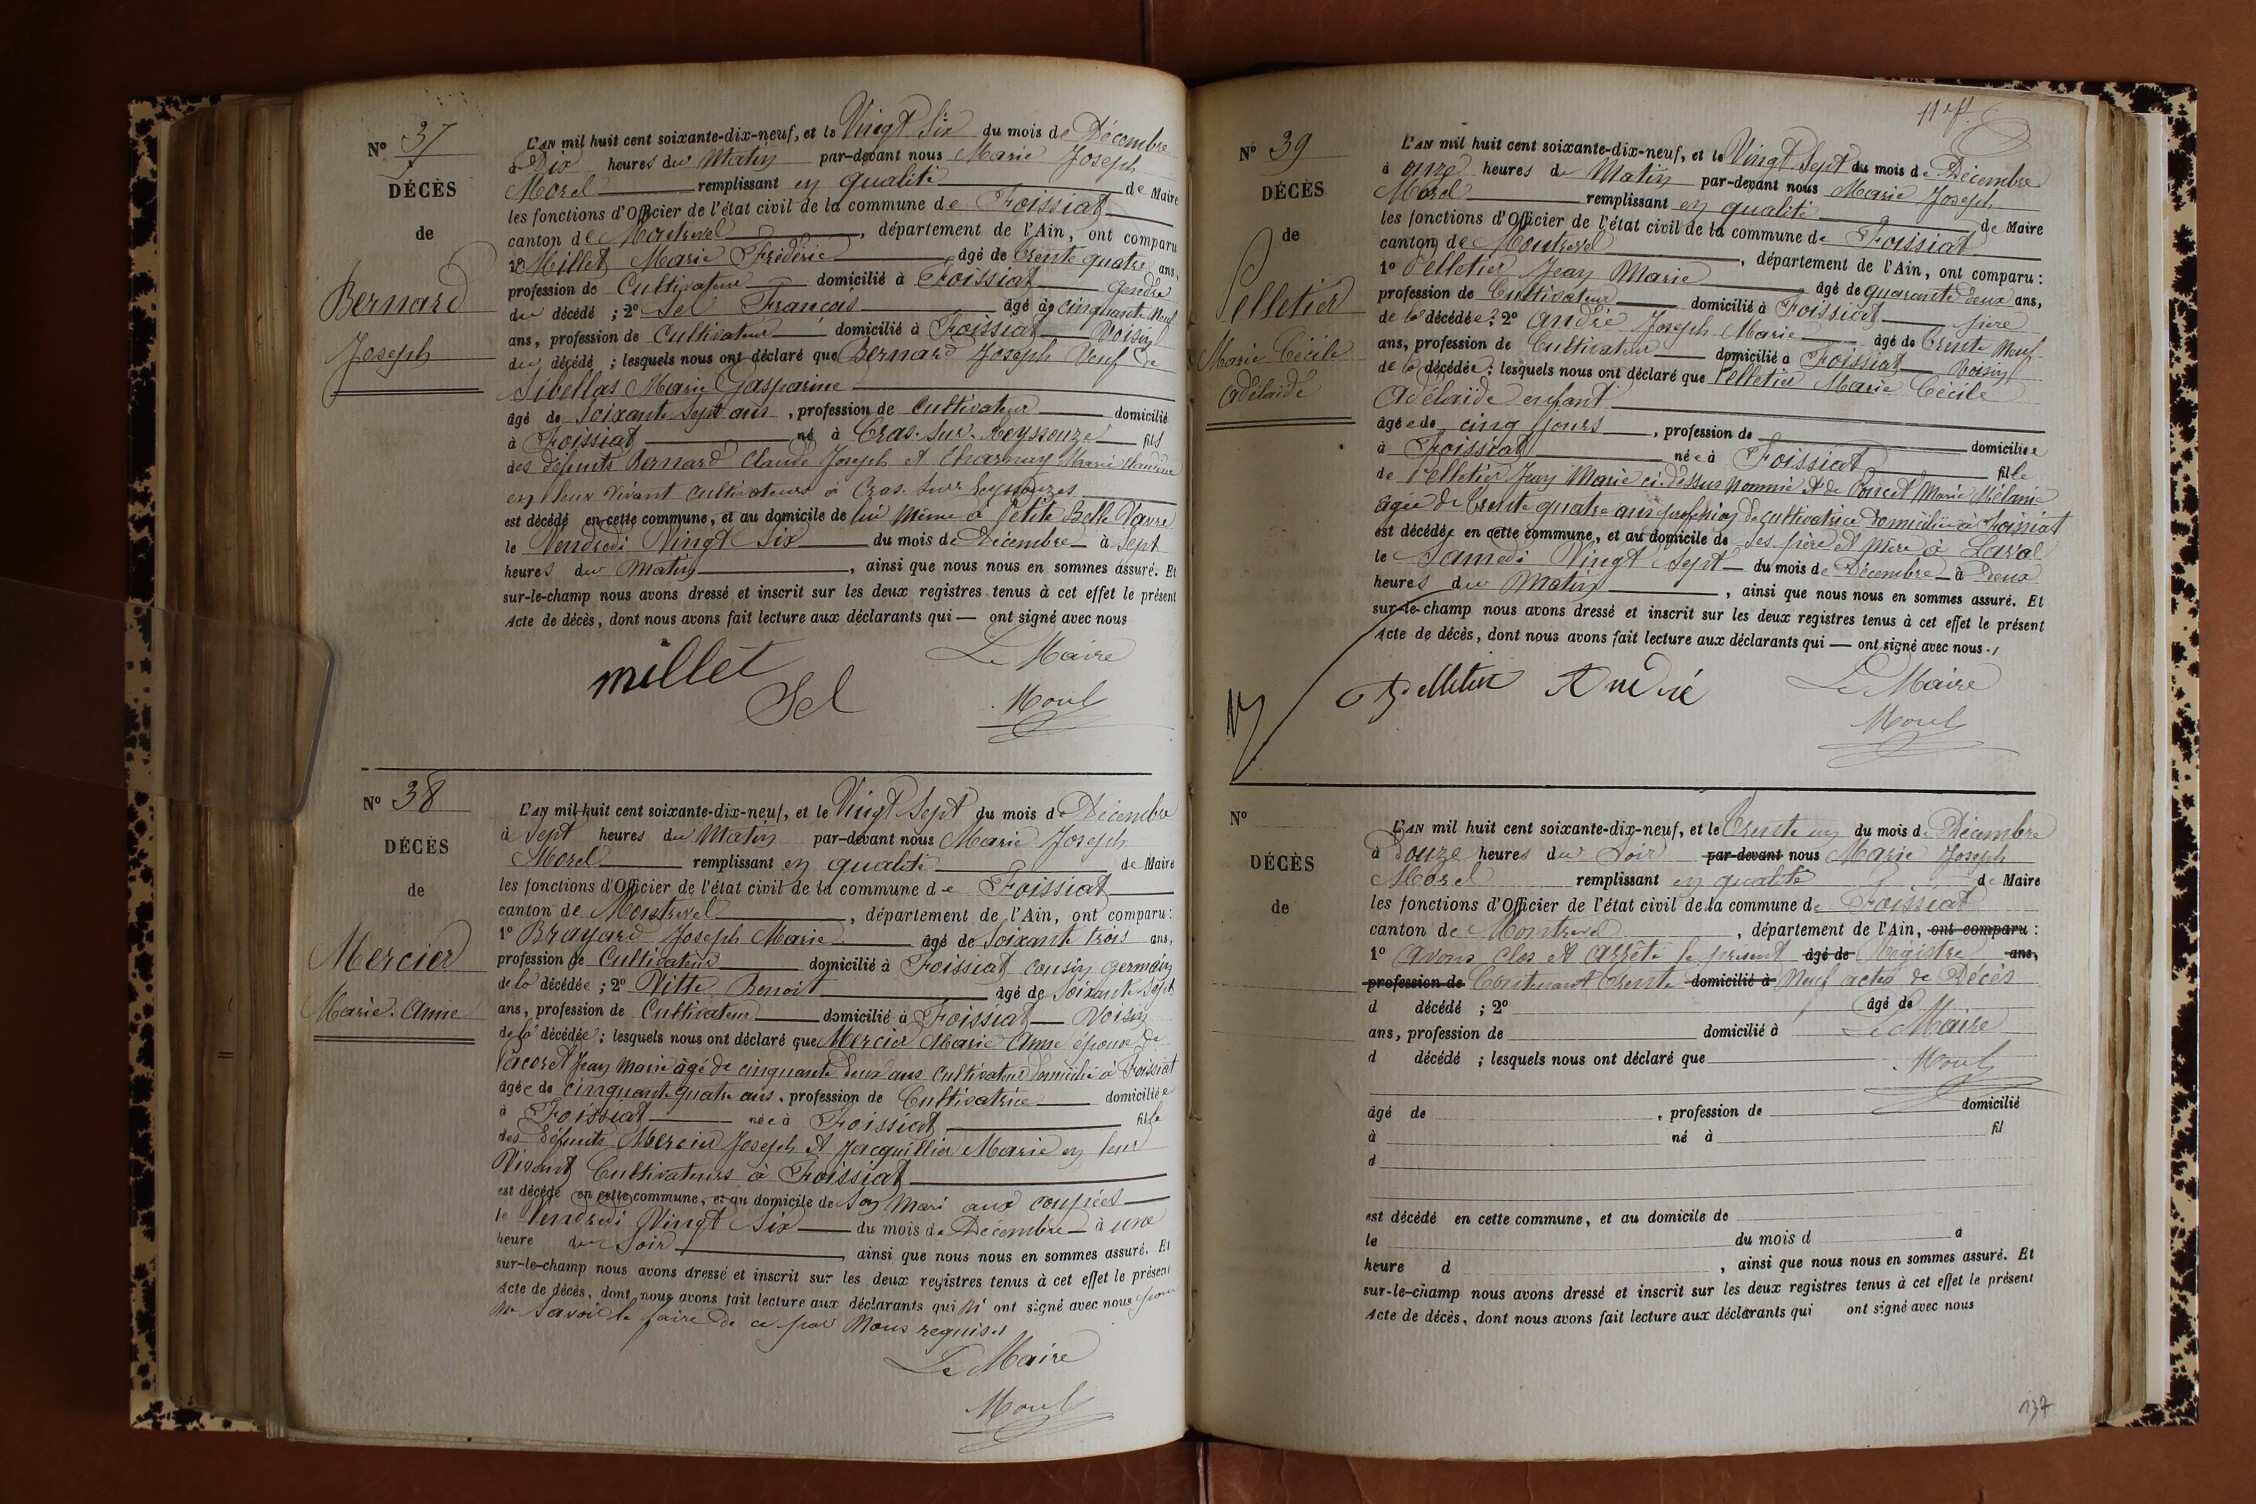 N° 37
DÉCÈS
de
Bernard
Joseph
L'AN mil huit cent soixante-dix-neuf, et le Vingt Six du mois de Décembre
à Dix heures du Matin par-devant nous Marie Joseph
Morel remplissant en qualité de Maire
les fonctions d'Officier de l'état civil de la commune de Foissiat
canton de Montrevel, département de l'Ain, ont comparu
1° Millet Marie Frédéric âgé de trente quatre ans,
profession de Cultivateur domicilié à Foissiat gendre
du décédé ; 2° Sel François âgé de cinquante neuf
ans, profession de Cultivateur domicilié à Foissiat Voisin
du décédé ; lesquels nous ont déclaré que Bernard Joseph Veuf de
Sibellas Marie Gasparine
âgé de Soixante Sept ans, profession de Cultivateur domicilié
à Foissiat né à Cras-Sur-Reyssouze fils
des défunts Bernard Claude Joseph et Charnay Marie Claudine
en leur vivant cultivateurs à Cras-Sur-Reyssouzes
est décédé en cette commune, et au domicile de lui Même à Petite Belle Vavre
le Vendredi Vingt Six du mois de Décembre à Sept
heures du Matin, ainsi que nous nous en sommes assuré. Et
sur-le-champ nous avons dressé et inscrit sur les deux registres tenus à cet effet le présent
Acte de décès, dont nous avons fait lecture aux déclarants qui — ont signé avec nous
Le Maire
millet
Sel
Morel
N° 38
DÉCÈS
de
Mercier
Marie-Anne
L'AN mil huit cent soixante-dix-neuf, et le Vingt Sept du mois de Décembre
à Sept heures du Matin par-devant nous Marie Joseph
Morel remplissant en qualité de Maire
les fonctions d'Officier de l'état civil de la commune de Foissiat
canton de Montrevel, département de l'Ain, ont comparu :
1° Brayard Joseph Marie âgé de Soixante trois ans,
profession de Cultivateur domicilié à Foissiat cousin germain
de la décédée ; 2° Vitte Benoit âgé de Soixante Sept
ans, profession de Cultivateur domicilié à Foissiat Voisin
de la décédée ; lesquels nous ont déclaré que Mercier Marie Anne épouse de
Pacoret Jean Marie âgé de cinquante deux ans Cultivateur domicilié à Foissiat
âgée de cinquante quatre ans, profession de Cultivatrice domiciliée
à Foissiat née à Foissiat fille
des défunts Mercier Joseph et Jacquillier Marie en leur
Vivant Cultivateurs à Foissiat
est décédé en cette commune, et au domicile de Son Mari aux coupées
le Vendredi Vingt Six du mois de Décembre à une
heure du Soir, ainsi que nous nous en sommes assuré. Et
sur-le-champ nous avons dressé et inscrit sur les deux registres tenus à cet effet le présent
Acte de décès, dont nous avons fait lecture aux déclarants qui n' ont signé avec nous pour
ne Savoir le faire de ce par Nous requis
Le Maire
Morel
N° 39
DÉCÈS
de
Pelletier
Marie Cécile
Adélaïde
L'AN mil huit cent soixante-dix-neuf, et le Vingt Sept du mois de Décembre
à onze heures du Matin par-devant nous Marie Joseph
Morel remplissant en qualité de Maire
les fonctions d'Officier de l'état civil de la commune de Foissiat
canton de Montrevel, département de l'Ain, ont comparu :
1° Pelletier Jean Marie âgé de quarante deux ans,
profession de Cultivateur domicilié à Foissiat père
de la décédée ; 2° André Joseph Marie âgé de trente Neuf
ans, profession de Cultivateur domicilié à Foissiat Voisin
de la décédée ; lesquels nous ont déclaré que Pelletier Marie Cécile
Adélaïde enfant
âgée de cinq Jours, profession de domiciliée
à Foissiat née à Foissiat fille
de Pelletier Jean Marie ci-dessus nommé et de Poncet Marie Mélanie
âgée de trente quatre ans profession de cultivatrice domiciliée à Foissiat
est décédée en cette commune, et au domicile de Ses père et Mère à Laval
le Samedi Vingt Sept du mois de Décembre à Deux
heures du Matin, ainsi que nous nous en sommes assuré. Et
sur-le-champ nous avons dressé et inscrit sur les deux registres tenus à cet effet le présent
Acte de décès, dont nous avons fait lecture aux déclarants qui — ont signé avec nous.
Pelletier André Le Maire
Morel
N°
DÉCÈS
de
L'AN mil huit cent soixante-dix-neuf, et le Trente un du mois de Décembre
à Douze heures du Soir par-devant nous Marie Joseph
Morel remplissant en qualité de Maire
les fonctions d'Officier de l'état civil de la commune de Foissiat
canton de Montrevel, département de l'Ain, ont comparu :
1° Avons clos et arrêté le présent âgé de Régistre ans,
profession de Contenant Trente domicilié à Neuf actes de Décès
d décédé ; 2° âgé de
ans, profession de domicilié à Le Maire
d décédé ; lesquels nous ont déclaré que Morel
âgé de , profession de domicilié
à né à fil
d
est décédé en cette commune, et au domicile de
le du mois d à
heure d , ainsi que nous nous en sommes assuré. Et
sur-le-champ nous avons dressé et inscrit sur les deux registres tenus à cet effet le présent
Acte de décès, dont nous avons fait lecture aux déclarants qui ont signé avec nous
137